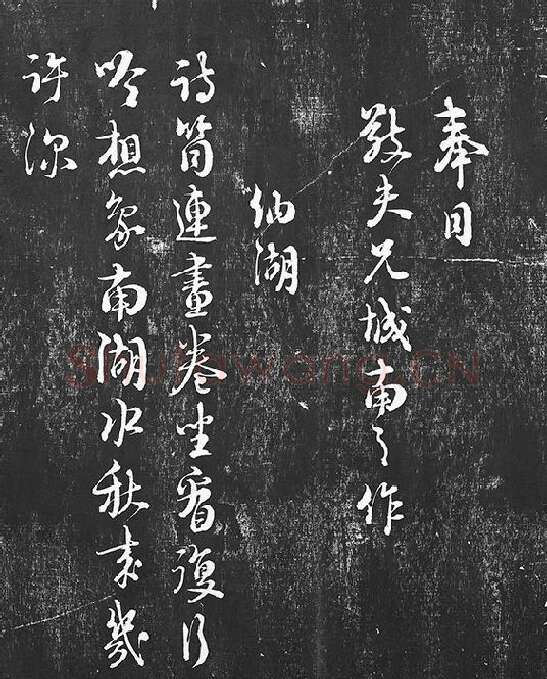 奉同
敬夫兄城南之作
納湖
詩筒連畫卷坐看復行
吟想象南湖水秋來幾
許深